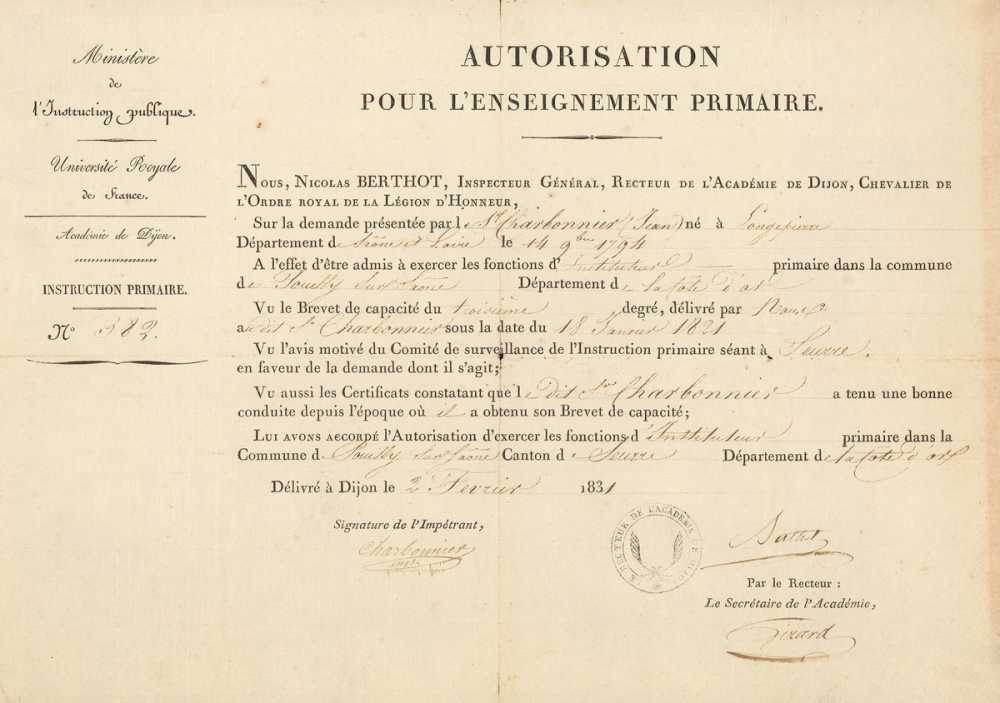 Ministère
de
l'Instruction publique.
Université Royale
de France.
Académie de Dijon.
INSTRUCTION PRIMAIRE.
N.º 582.
AUTORISATION
POUR L'ENSEIGNEMENT PRIMAIRE.
Nous, Nicolas BERTHOT, Inspecteur Général, Recteur de l'Académie de Dijon, Chevalier de
l'Ordre royal de la Légion d'Honneur,
Sur la demande présentée par le Sr Charbonnier (Jean) né à Longepierre
Département de Saône et Loire le 14 9bre 1794
A l'effet d'être admis à exercer les fonctions d'Instituteur primaire dans la commune
de Pouilly sur Saône Département de la Côte d'or
Vu le Brevet de capacité du troisième degré, délivré par Nous
au dit Sr Charbonnier sous la date du 18 Janvier 1821
Vu l'avis motivé du Comité de surveillance de l'Instruction primaire séant à Seurre.
en faveur de la demande dont il s'agit;
Vu aussi les Certificats constatant que le dit Sr Charbonnier a tenu une bonne
conduite depuis l'époque où il a obtenu son Brevet de capacité;
Lui avons accordé l'Autorisation d'exercer les fonctions d'Instituteur primaire dans la
Commune de Pouilly sur Saône Canton de Seurre Département de la Côte d'or
Délivré à Dijon le 2 Fevrier 1831
Signature de l'Impétrant,
Charbonnier
LE RECTEUR DE L'ACADÉMIE DE DIJON
Berthot
Par le Recteur :
Le Secrétaire de l'Académie,
Girard